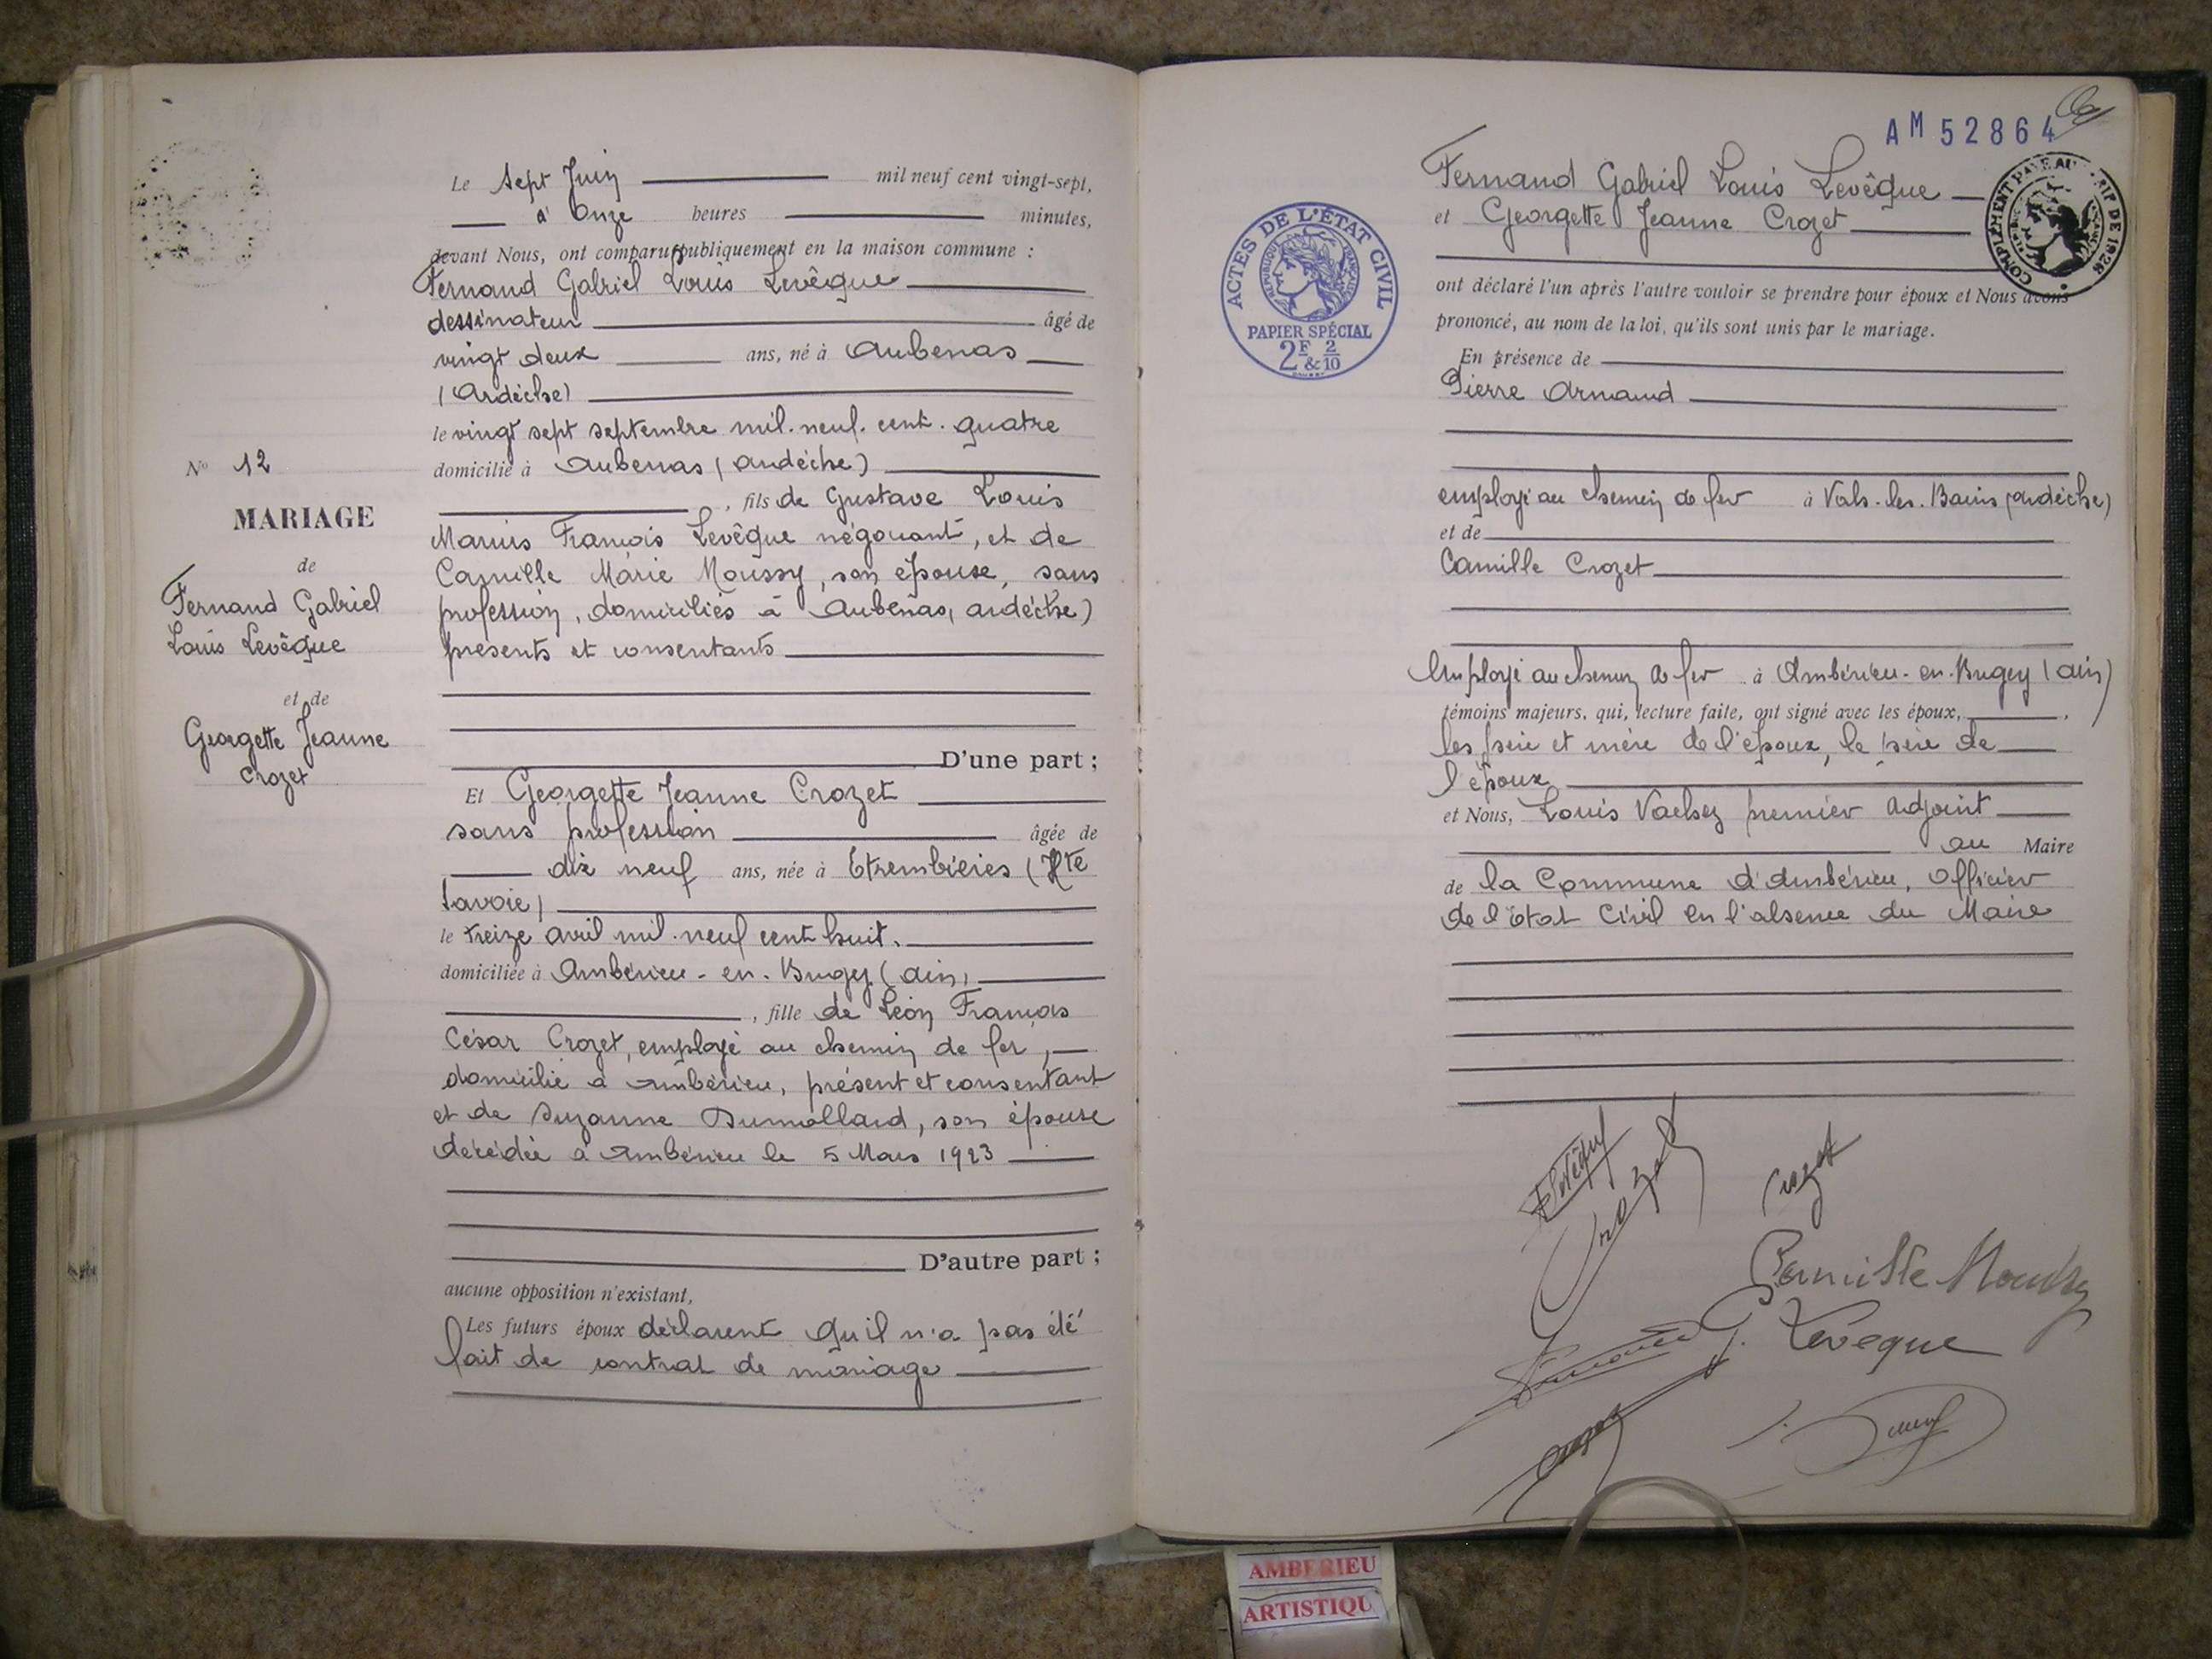 Le sept Juin mil neuf cent vingt-sept,
à Onze heures minutes,
devant Nous, ont comparu publiquement en la maison commune :
Fernand Gabriel Louis Levêque
dessinateur âgé de
vingt deux ans, né à Aubenas
(Ardèche)
le vingt sept septembre mil. neuf. cent. quatre
domicilié à Aubenas (Ardèche)
, fils de Gustave Louis
Marius François Levêque négociant, et de
Camille Marie Moussy, son épouse, sans
profession, domiciliés à Aubenas, ardèche)
présents et consentants
D'une part ;
Nº 12
MARIAGE
de
Fernand Gabriel
Louis Levêque
et de
Georgette Jeanne
Crozet
Et Georgette Jeanne Crozet
sans profession âgée de
dix neuf ans, née à Etrembières (Hte
Savoie)
le treize avril mil. neuf cent huit.
domiciliée à Ambérieu-en-Bugey (ain)
, fille de Léon François
César Crozet, employé au chemin de fer,
domicilié à Ambérieu, présent et consentant
et de Suzanne Dumollard, son épouse
décédée à Ambérieu le 5 Mars 1923
D'autre part ;
aucune opposition n'existant,
Les futurs époux déclarent qu'il n'a pas été
fait de contrat de mariage
AM 52864
Fernand Gabriel Louis Levêque
et Georgette Jeanne Crozet
COMPLÉMENT PAYÉ AU TARIF DE 1926
ACTES DE L'ÉTAT CIVIL
RÉPUBLIQUE FRANÇAISE
PAPIER SPÉCIAL
2F & 2/10
ont déclaré l'un après l'autre vouloir se prendre pour époux et Nous avons
prononcé, au nom de la loi, qu'ils sont unis par le mariage.
En présence de
Pierre Arnaud
employé au chemin de fer à Vals-les-Bains (ardèche)
et de
Camille Crozet
Employé au chemin de fer à Ambérieu-en-Bugey (ain)
témoins majeurs, qui, lecture faite, ont signé avec les époux,
les père et mère de l'époux, le père de
l'époux
et Nous, Louis premier adjoint
au Maire
de la Commune d'Ambérieu, Officier
de l'Etat Civil en l'absence du Maire
Levêque
Crozet
Crozet
Camille Moussy
G. Leveque
AMBERIEU
ARTISTIQU